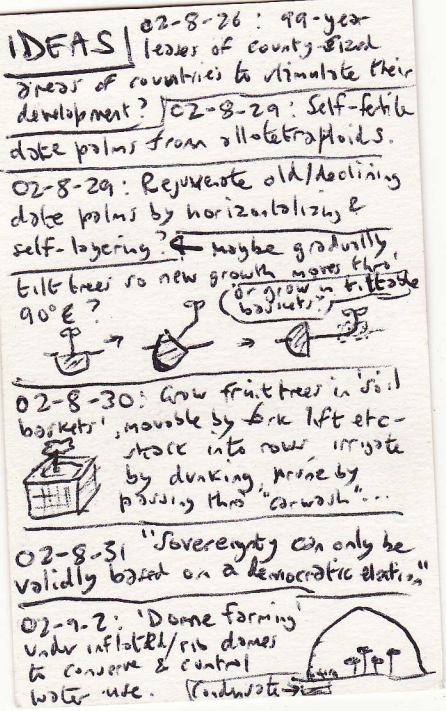 IDEAS
02-8-26 : 99-year
leases of county-sized
areas of countries to stimulate their
development?
02-8-29: Self-fertile
date palms from allotetraploids.
02-8-29: Rejuvenate old/declining
date palms by horizontalizing &
self-layering? ← maybe gradually
tilt trees so new growth moves thro'
90° ?
"or grow in tiltable
baskets"
02-8-30: Grow fruit trees in 'soil
baskets', movable by fork lift etc-
stack into rows irrigate
by dunking, prune by
passing thro' "carwash"...
02-8-31 "Sovereignty can only be
validly based on a democratic election"
02-9-2: 'Dome farming'
under inflated/rib domes
to conserve & control
water use.
Condensate→